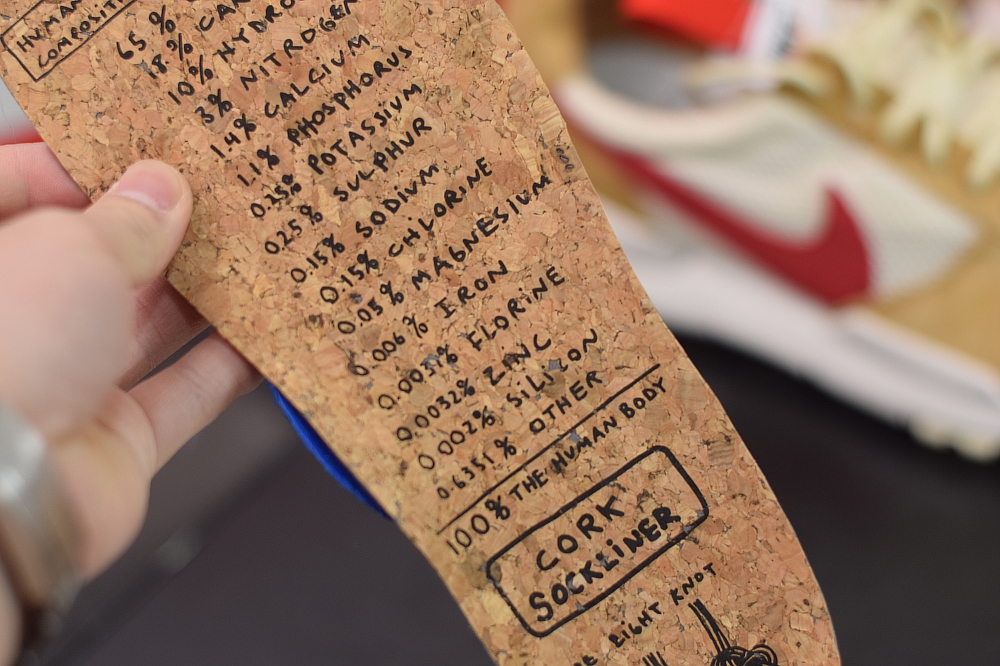 HUMAN
COMPOSITI
65 %
18 % CAR
10% HYDRO
3% NITROGEN
1.4% CALCIUM
1.1% PHOSPHORUS
0.25% POTASSIUM
0.25% SULPHUR
0.15% SODIUM
0.15% CHLORINE
0.05% MAGNESIUM
0.006% IRON
0.0037% FLORINE
0.0032% ZINC
0.002% SILIZON
0.6351% OTHER
100% THE HUMAN BODY
CORK
SOCKLINER
RIGHT KNOT